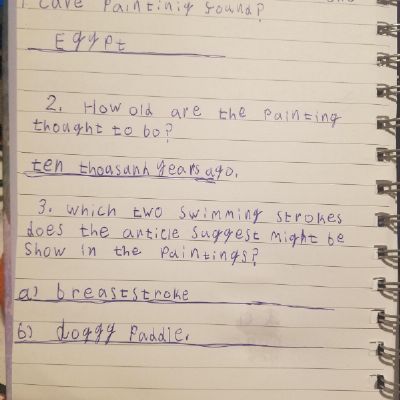 1. Cave Paintinig Found?
Eggpt
2. How old are the Painting
thought to bo?
ten thoasanh years ago.
3. which two swimming strokes
does the anticle suggest might be
show in the Paintings?
a) breaststroke
b) doggy Paddle.